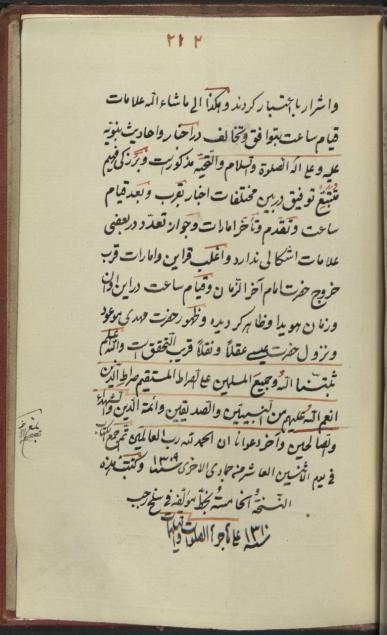 ۲۱۲
واشرار با اختیار کردند وهکذا الی ماشاء الله علامات
قیام ساعت بتوافق وتخالف در اخبار واحادیث نبویه
علیه وعلی اله الصلوة والسلام والتحیة مذکورست وبر زکی فهیم
متتبع توفیق در بین مختلفات اخبار تقرب وبعد قیام
ساعت وتقدم وتأخر امارات وجواز تعدد در بعضی
علامات اشکالی ندارد واغلب قراین وامارات قرب
خروج حضرت امام آخر الزمان وقیام ساعت در این اوان
وزمان هویدا وظاهر کردیده وظهور حضرت مهدی موعود
ونزول حضرت عیسی عقلاً ونقلاً قریب التحقق است والله اعلم
ثبتنا الله وجمیع المسلمین علی الصراط المستقیم صراط الذین
انعم الله علیهم من النبیین والصدیقین وائمة الدین والشهداء
والصالحین وآخر دعوانا ان الحمد لله رب العالمین تم جمع الکتاب
فی یوم الاثنین العاشر من جمادی الاخری سنة ۱۳۰۹ وکتبت هذه
النسخة الخامسة بخط مؤلفه فی سلخ رجب
سنة ۱۳۱۰ علی هاجرها الصلوات والتسلیمات
بلغ